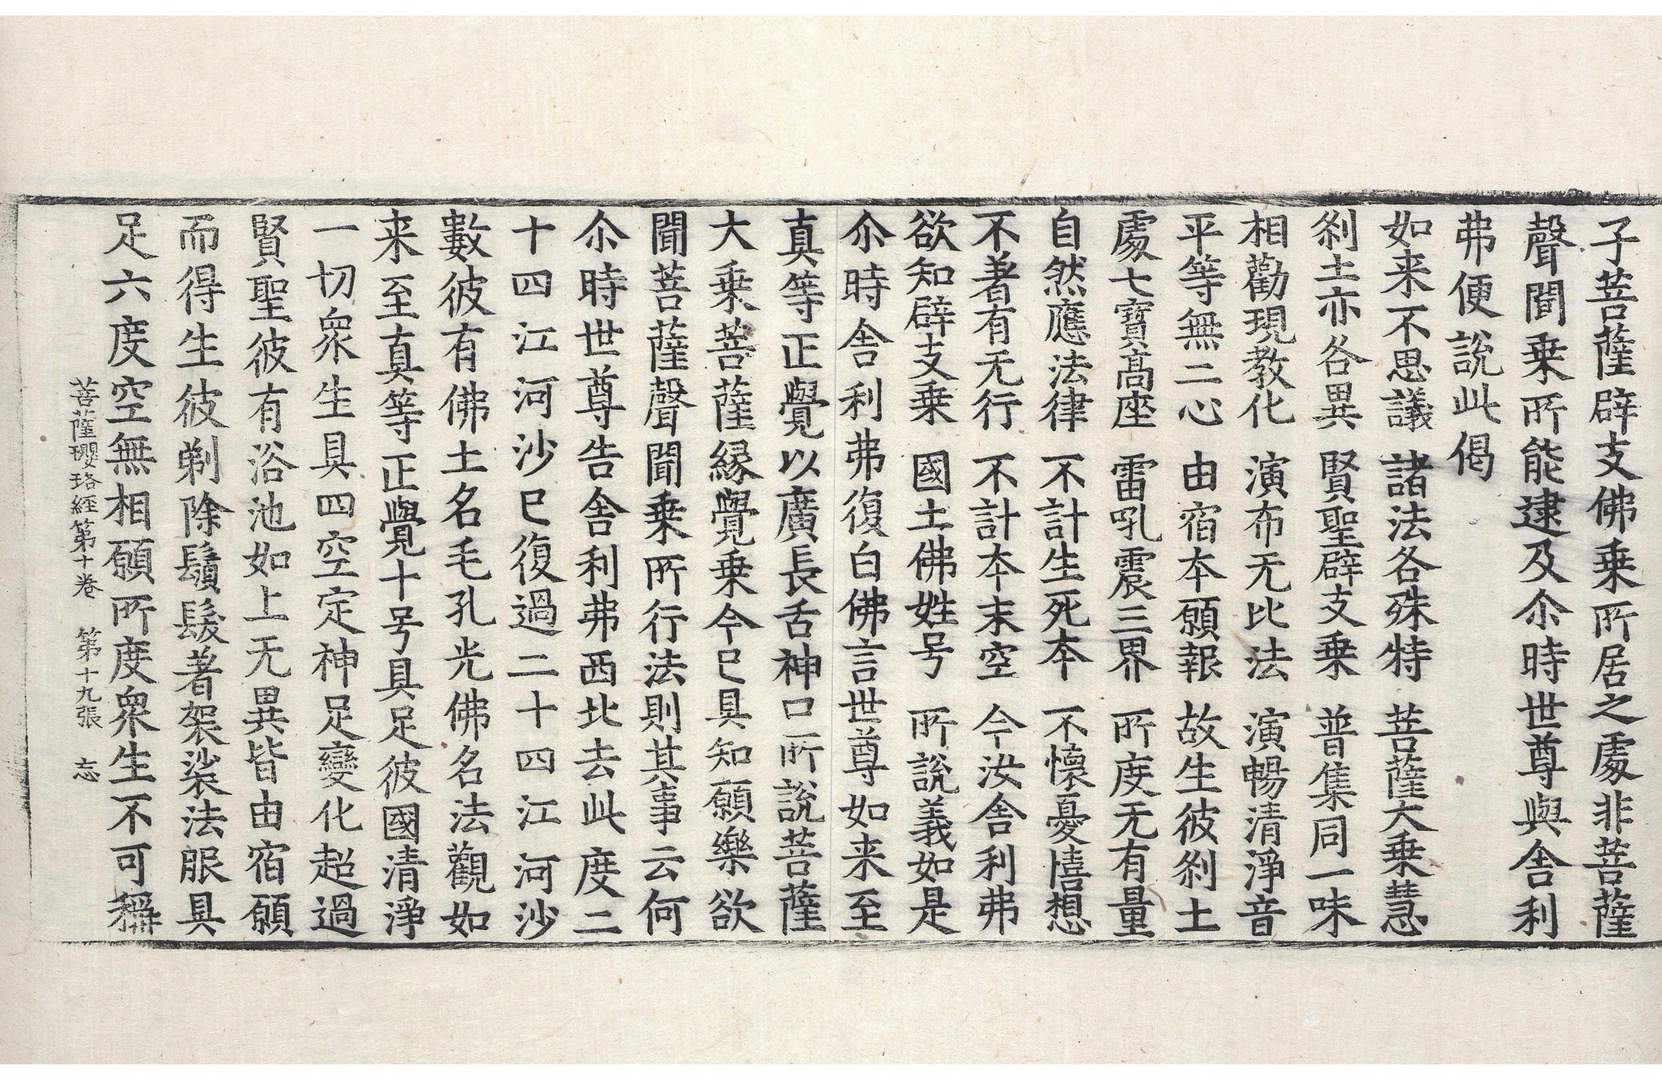 子菩薩辟支佛乗所居之處非菩薩
聲聞乗所能逮及尒時世尊與舎利
弗便説此偈
如来不思議　諸法各殊特　菩薩大乗慧
刹土亦各異　賢聖辟支乗　普集同一味
相勸現教化　演布无比法　演暢清淨音
平等無二心　由宿本願報　故生彼刹土
處七寶髙座　雷吼震三界　所度无有量
自然應法律　不計生死本　不懷憂憘想
不著有无行　不計本末空　今汝舎利弗
欲知辟支乗　國土佛姓号　所説義如是
尒時舎利弗復白佛言世尊如来至
真等正覺以廣長舌神口所説菩薩
大乗菩薩縁覺乗今已具知願樂欲
聞菩薩聲聞乗所行法則其事云何
尒時世尊告舎利弗西北去此度二
十四江河沙已復過二十四江河沙
數彼有佛土名毛孔光佛名法觀如
来至真等正覺十号具足彼國清淨
一切衆生具四空定神足變化超過
賢聖彼有浴池如上无異皆由宿願
而得生彼剃除鬚髮著袈裟法服具
足六度空無相願所度衆生不可稱
菩薩瓔珞經第十卷　第十九張　忘